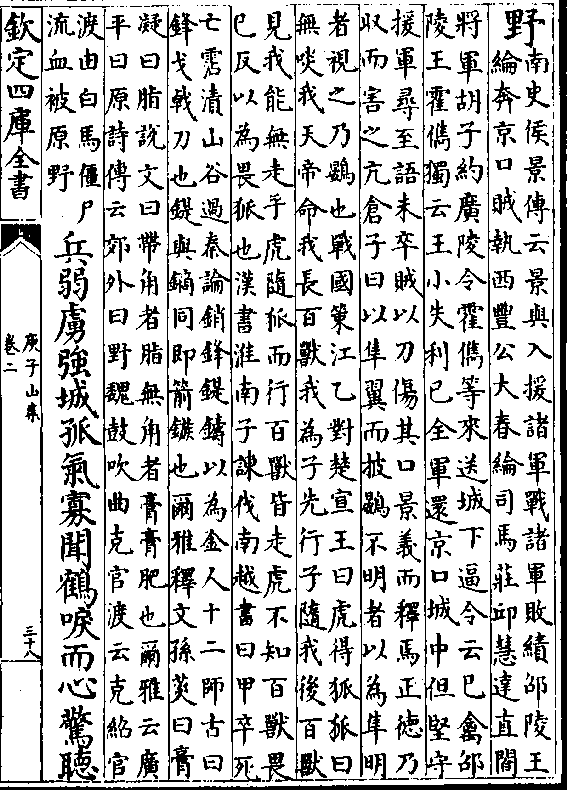 野南史侯景傳云景與入援諸軍戰諸軍敗績邵陵王
綸奔京口賊執西豐公大春綸司馬莊邱慧達直閤
將軍胡子約廣陵令霍儁等來送城下逼令云已禽邵
陵王霍儁獨云王小失利已全軍還京口城中但堅守
援軍尋至語未卒賊以刀傷其口景義而釋焉正德乃
収而害之亢倉子曰以隼翼而披鷃不明者以為隼明
者視之乃鷃也戰國策江乙對楚宣王曰虎得狐狐曰
無啖我天帝命我長百獸我為子先行子隨我後百獸
見我能無走乎虎隨狐而行百獸皆走虎不知百獸畏
已反以為畏狐也漢書淮南子諫伐南越書曰甲卒死
亡霑漬山谷過秦論銷鋒鍉鑄以為金人十二師古曰
鋒戈戟刀也鍉與鏑同即箭鏃也爾雅釋文孫炎曰膏
凝曰脂說文曰帶角者脂無角者膏膏肥也爾雅云廣
平曰原詩傳云郊外曰野魏鼓吹曲克官渡云克紹官
渡由白馬僵尸
流血被原野
兵弱虜強城孤氣寡聞鶴唳而心驚聽
欽定四庫全書
庾子山集
卷二
三十八